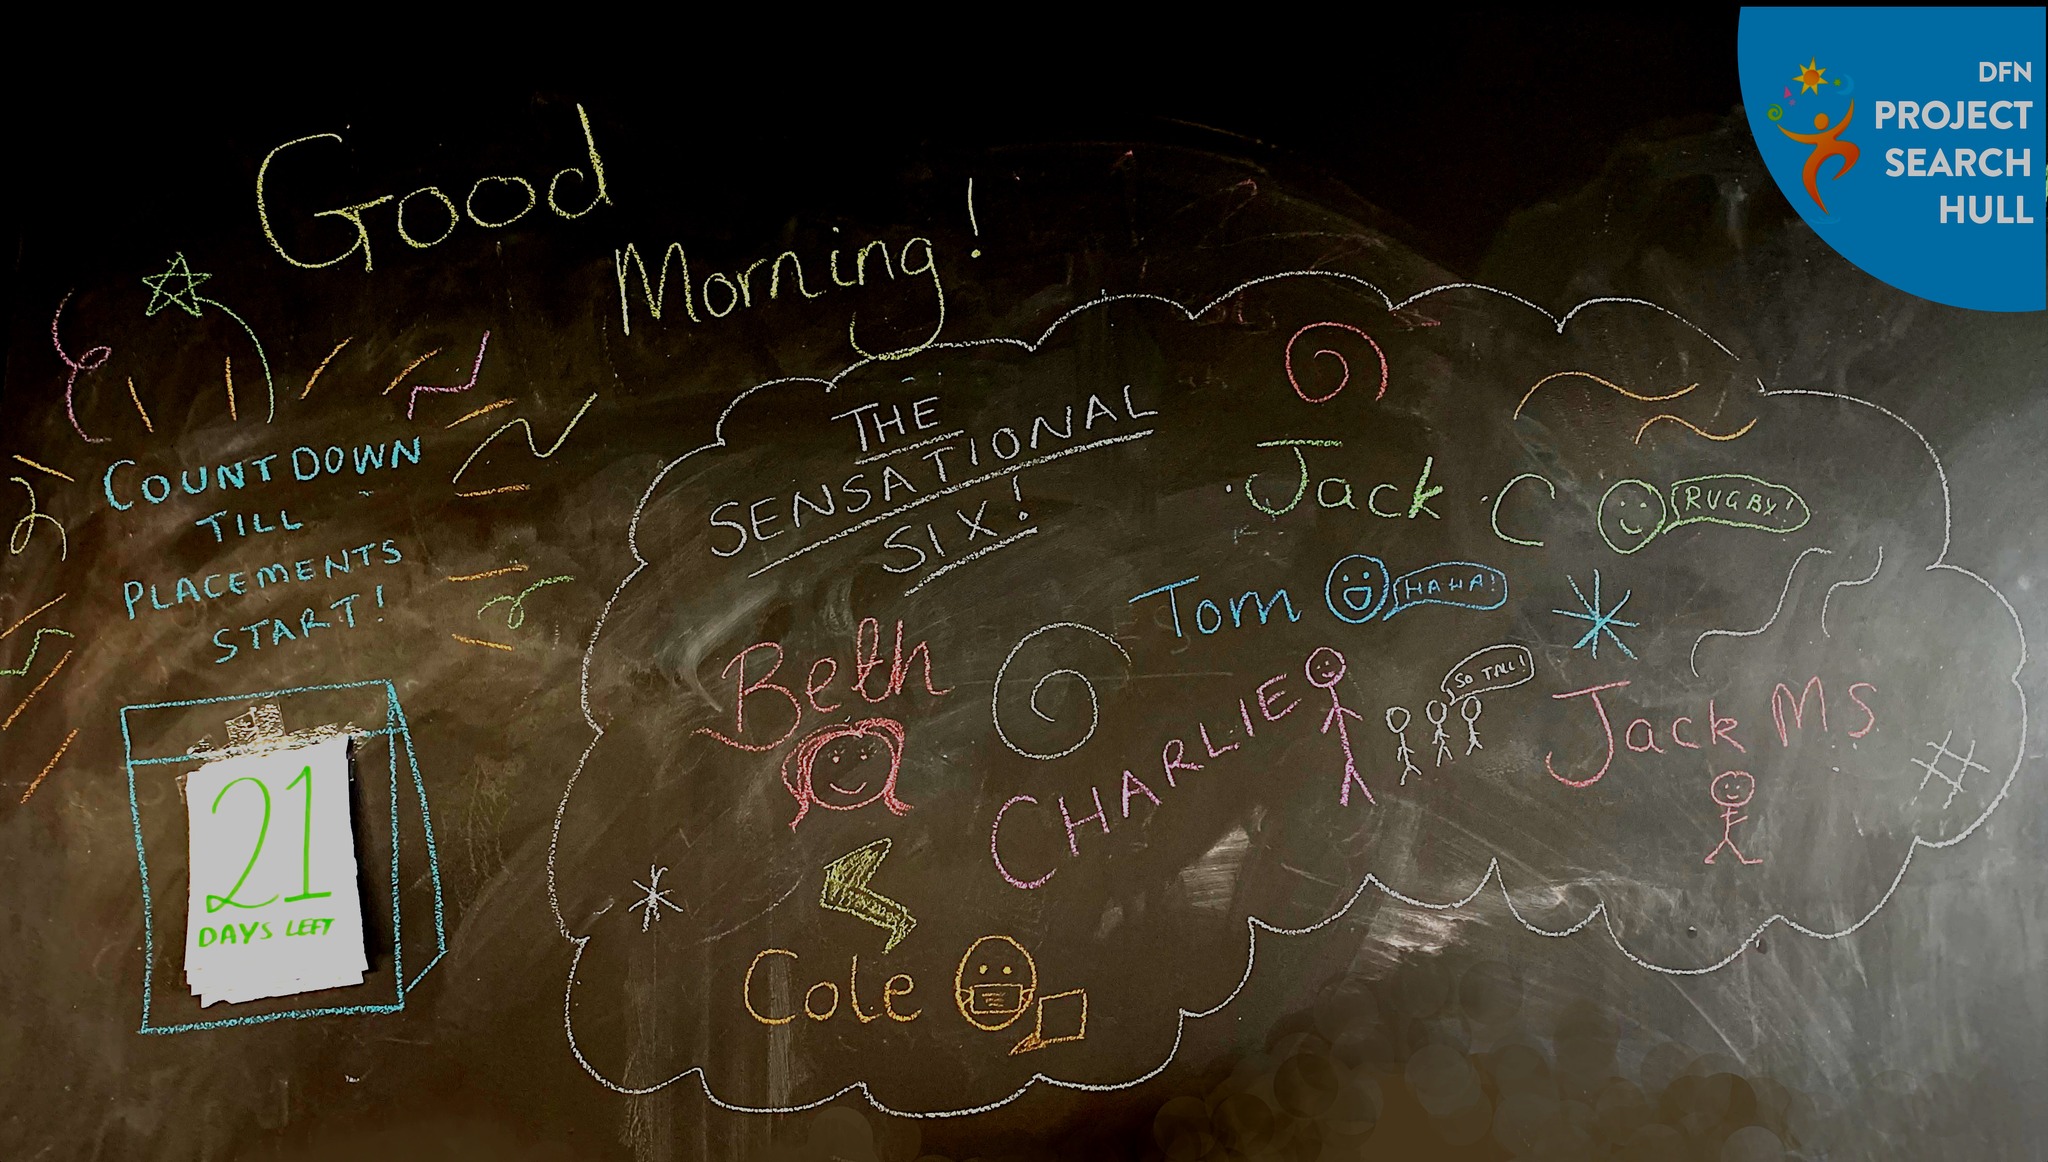 DFN
PROJECT
SEARCH
HULL
Good
Morning!
COUNTDOWN
TILL
PLACEMENTS
START!
21
DAYS LEFT
THE
SENSATIONAL
SIX!
Jack C
RUGBY!
Tom
HAHA!
Beth
CHARLIE
SO TALL!
Jack MS
Cole